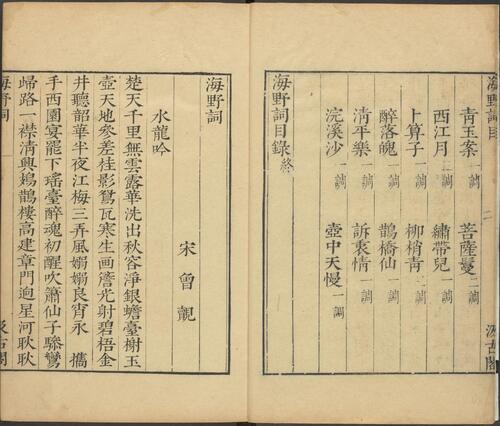 海野詞目
青玉案 一調 菩薩蠻 二調
西江月 一調 繡帶兒 一調
卜算子 一調 柳梢青 一調
醉落魄 一調 鵲橋仙 一調
清平樂 一調 訴衷情 一調
浣溪沙 一調 壺中天慢 一調
海野詞目錄終
二
汲古閣
海野詞
宋 曾覿
水龍吟
楚天千里無雲露華洗出秋容淨銀蟾臺榭玉
壺天地參差桂影鴛瓦寒生画簷光射碧梧金
井聽韶華半夜江梅三弄風嫋嫋良宵永 攜
手西園宴罷下瑤臺醉魂初醒吹簫仙子驂鸞
歸路一襟清興鳷鵲樓高建章門迥星河耿耿
海野詞
汲古閣